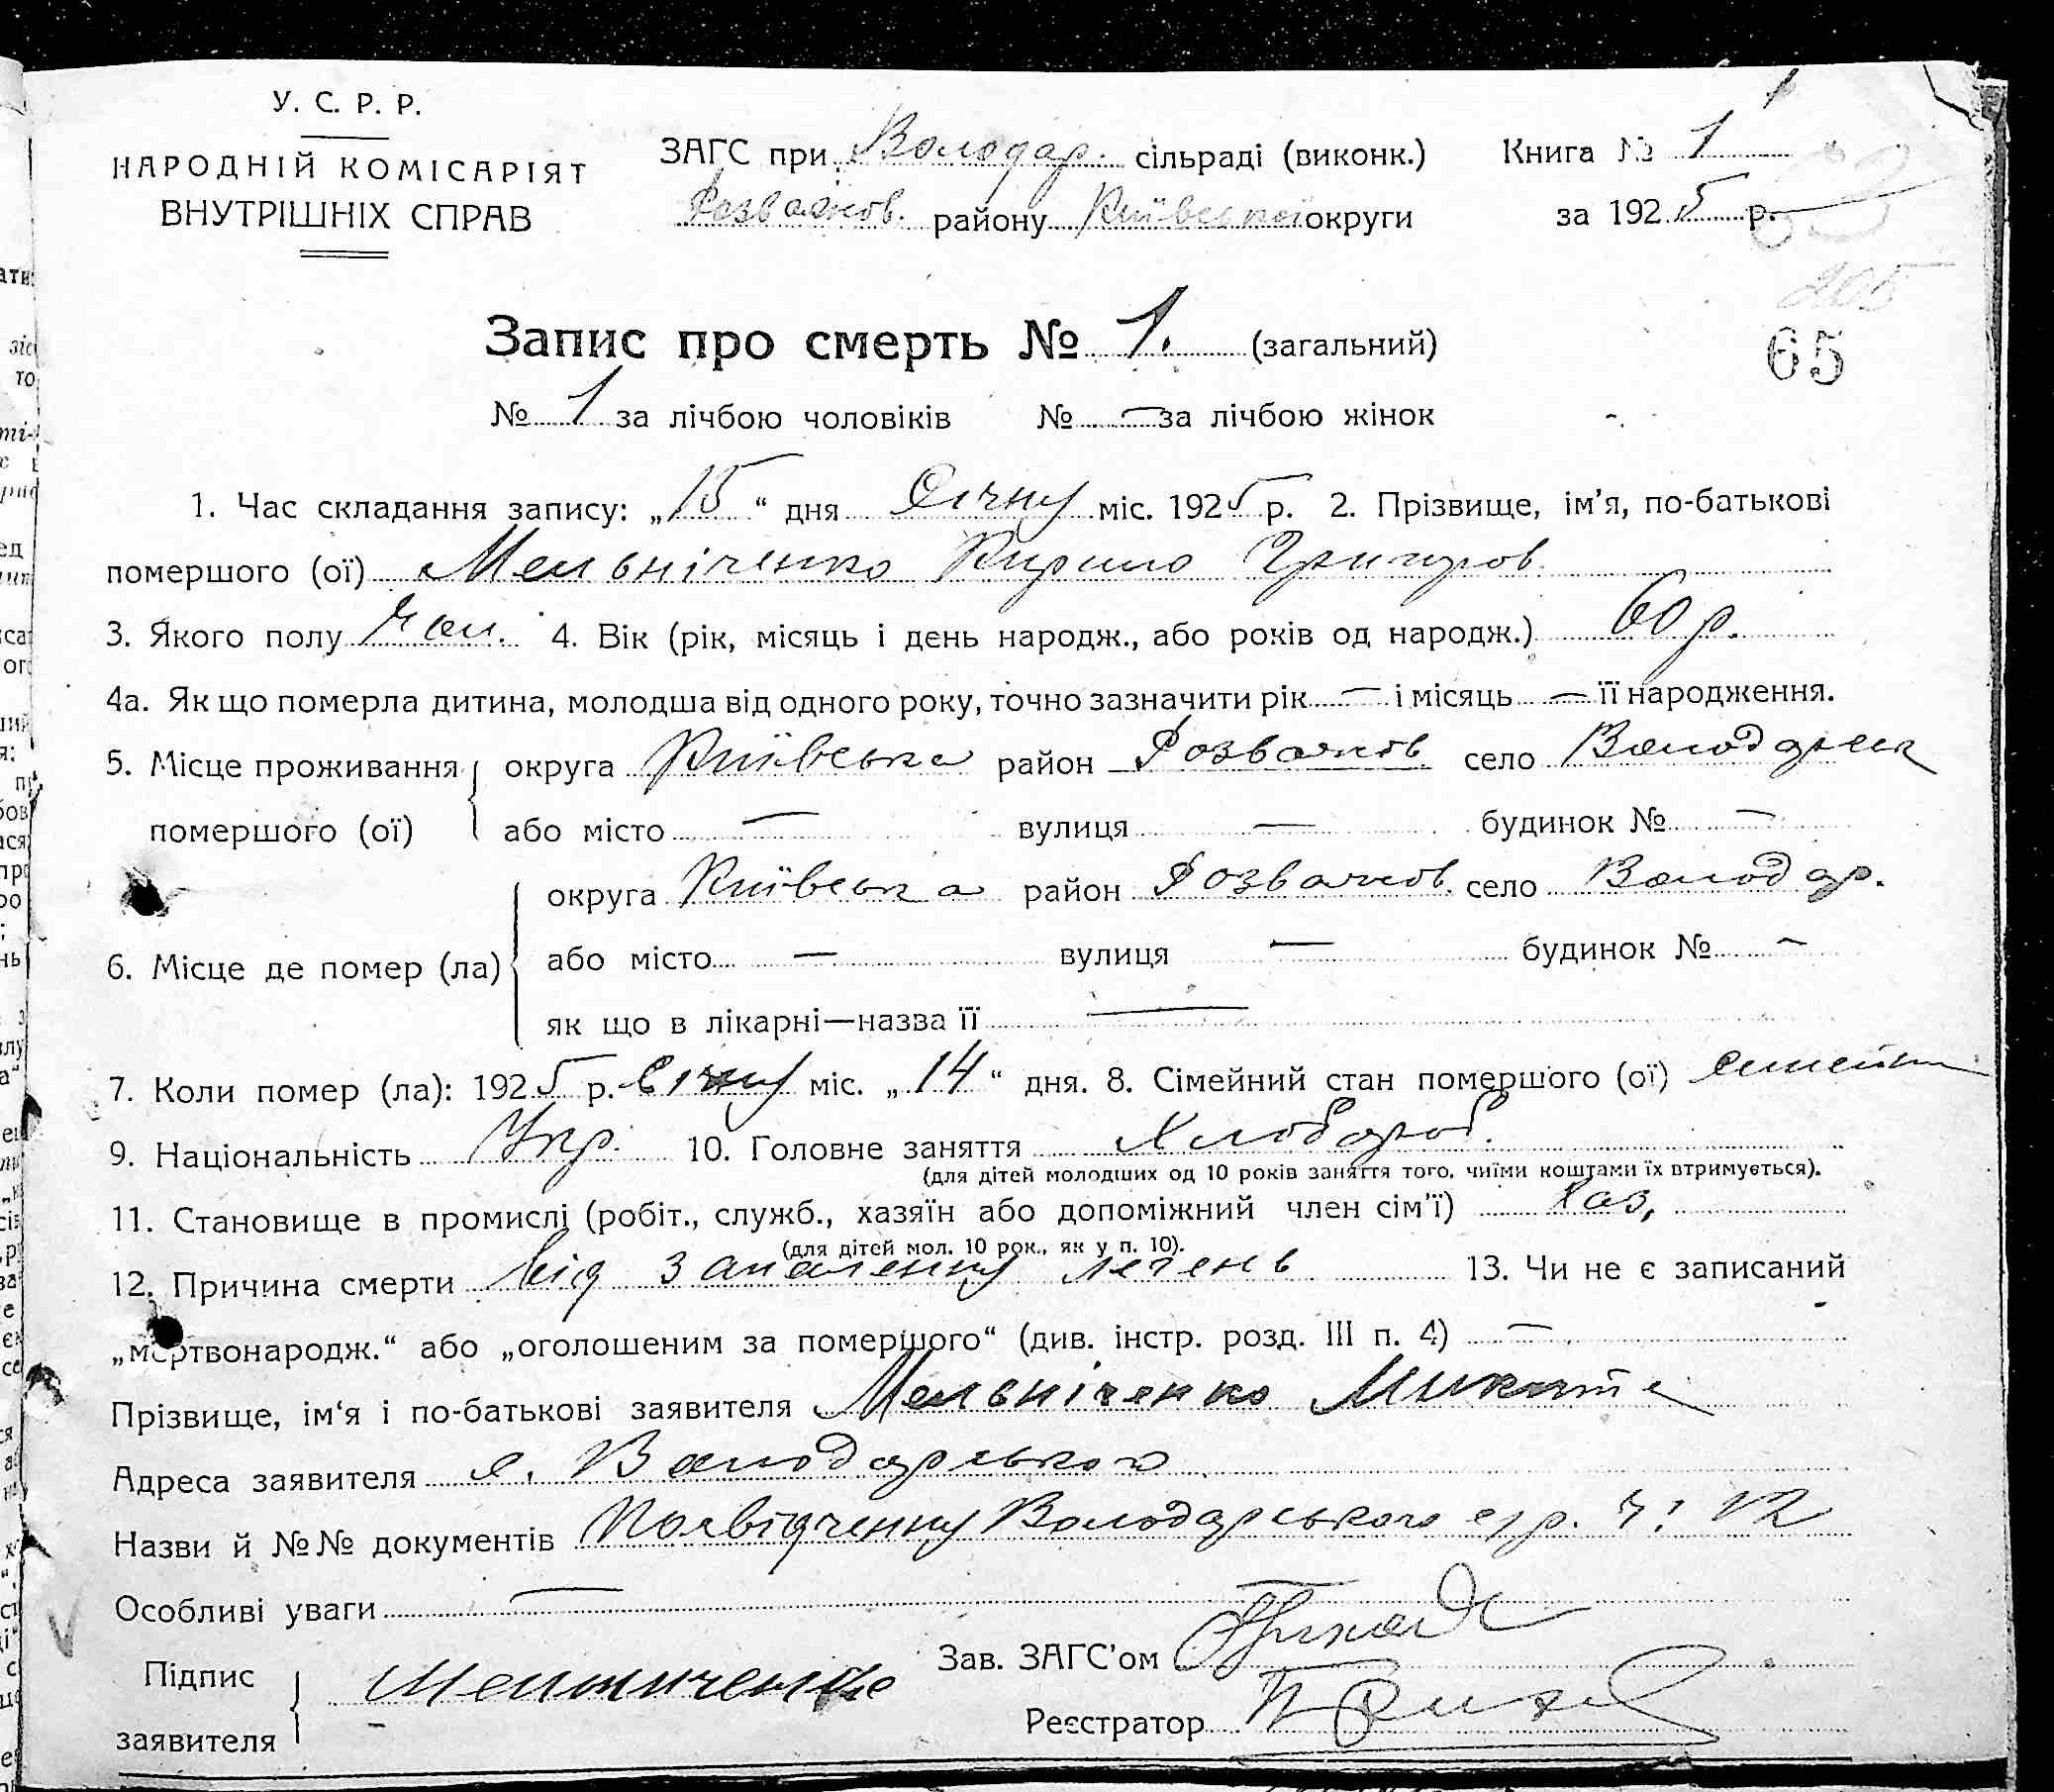 У. С. Р. Р.
НАРОДНІЙ КОМІСАРІЯТ
ВНУТРІШНІХ СПРАВ
ЗАГС при Володар. сільраді (виконк.)
Розважов. району Київської округи
Книга № 1
за 1925 р.
205
65
Запис про смерть № 1. (загальний)
№ 1 за лічбою чоловіків № — за лічбою жінок
1. Час складання запису: „15“ дня Січну міс. 1925 р. 2. Прізвище, ім’я, по-батькові
помершого (ої) Мельніченко Кирило Григоров.
3. Якого полу чол. 4. Вік (рік, місяць і день народж., або років од народж.) 60 р.
4а. Як що померла дитина, молодша від одного року, точно зазначити рік — і місяць — її народження.
5. Місце проживання округа Київська район Розважов село Володарськ
помершого (ої) або місто — вулиця — будинок № —
округа Київська район Розважов. село Володар.
6. Місце де помер (ла) або місто — вулиця — будинок № —
як що в лікарні—назва її —
7. Коли помер (ла): 1925 р. Січну міс. „14“ дня. 8. Сімейний стан помершого (ої)
9. Національність Укр. 10. Головне заняття Хлібороб.
(для дітей молодших од 10 років заняття того, чиїми коштами їх втримується).
11. Становище в промислі (робіт., служб., хазяїн або допоміжний член сім’ї) Хаз.
(для дітей мол. 10 рок., як у п. 10).
12. Причина смерти від запаленну легень 13. Чи не є записаний
„мертвонародж.“ або „оголошеним за помершого“ (див. інстр. розд. III п. 4) —
Прізвище, ім‘я і по-батькові заявителя Мельніченко Микита
Адреса заявителя с. Володарського
Назви й №№ документів Посвідченну Володарського с/р. ч: 12
Особливі уваги —
Підпис
заявителя Мельниченко
Зав. ЗАГС’ом
Реєстратор